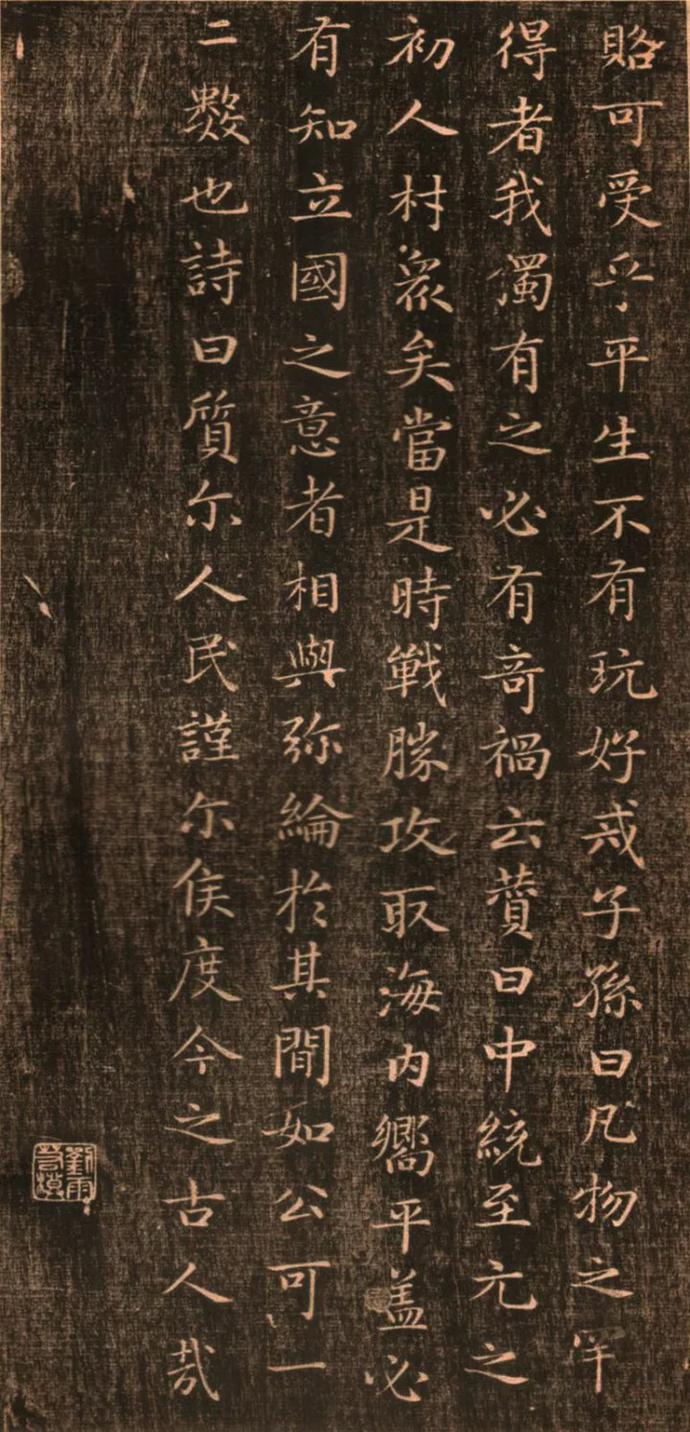 賂可受乎平生不有玩好戒子孫曰凡物之罕
得者我獨有之必有奇禍云賛曰中統至元之
初人材衆矣當是時戰勝攻取海内嚮平盖必
有知立國之意者相與弥綸於其間如公可一
二數也詩曰質尔人民謹尔侯度今之古人哉